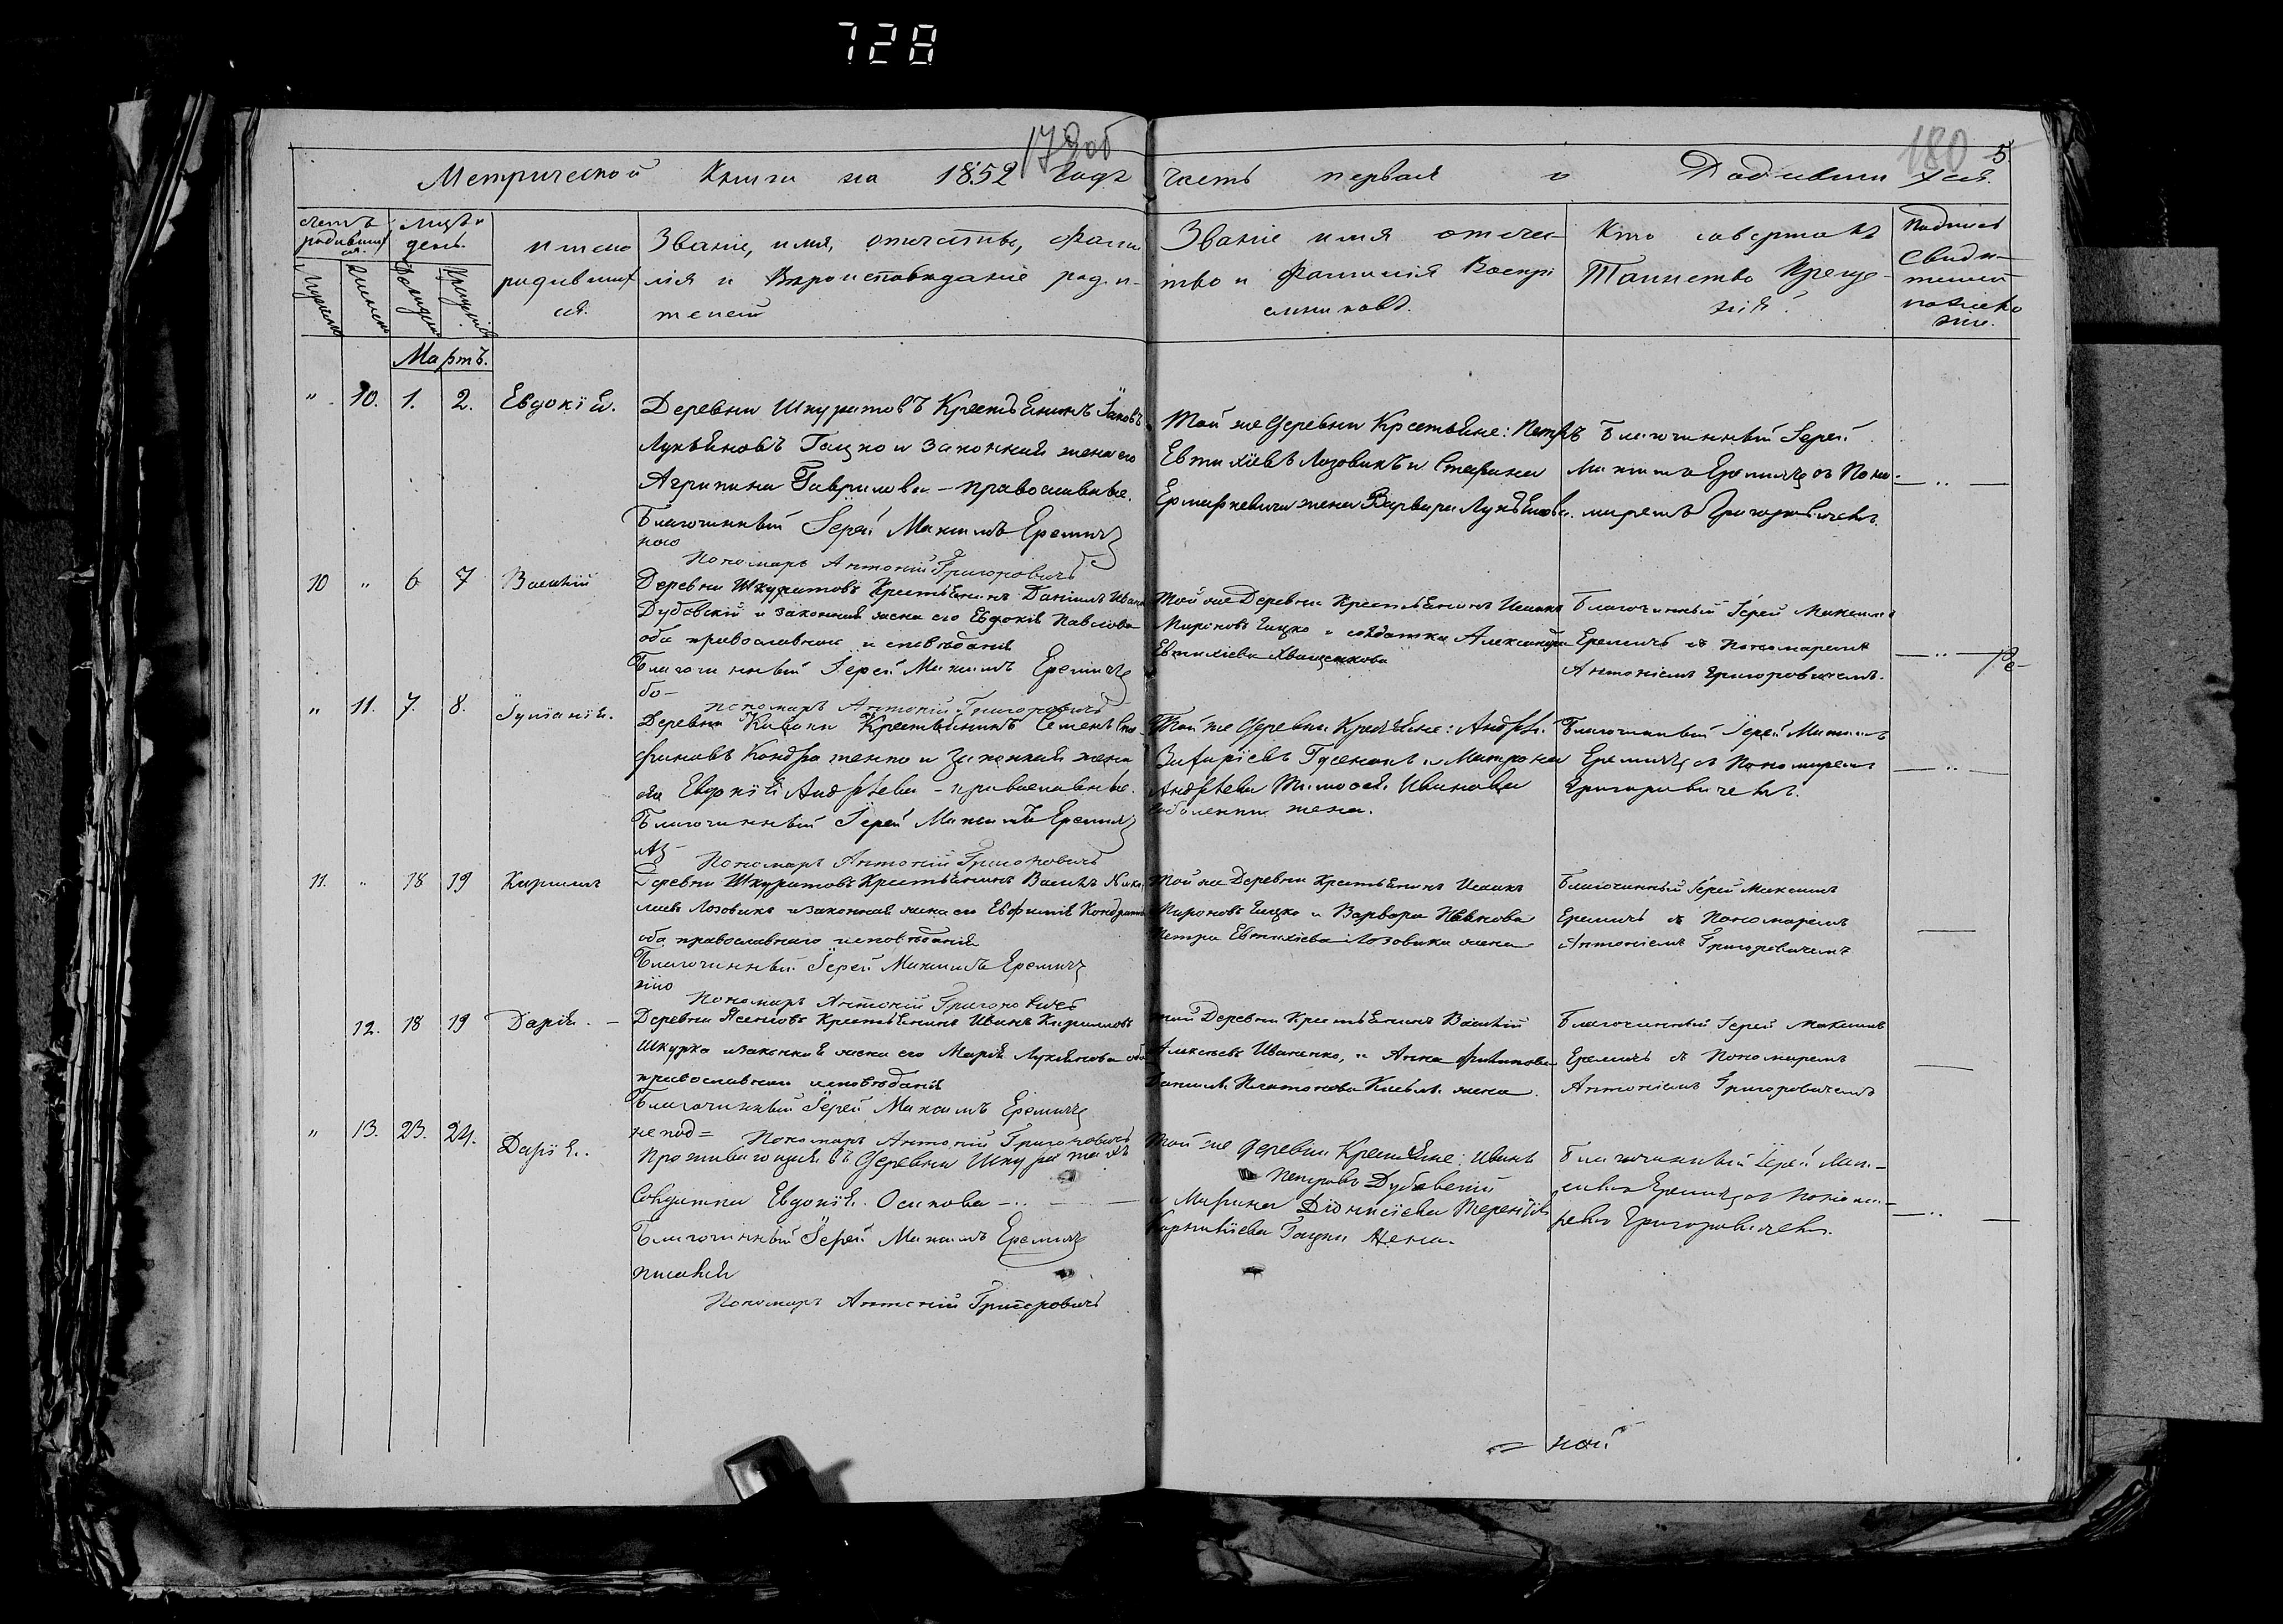 728
179об
180
5.
Метрической Книги на 1852 Годъ часть первая о Родившихся.
Мартъ.
Имено родившихся.
Званіе, имя, отчество, Фамилія и Вѣроисповѣданіе родителей
Званіе имя отечество и Фамилія Воспріемниковъ.
Кто совершалъ Таинство Крещенія?
Подпись Свидѣтелей
" 10. 1. 2. Евдокія.
Деревни Шкуратовъ Крестьянинъ Іаковъ
Лукьяновъ Гацко и законная жена его
Агрипина Гаврилова - православные.
Благочинный Іерей Максимъ Еремичъ
ного
Пономарь Антоній Григоровичъ
Той же Деревни Крестьяне: Петръ
Евтихіевъ Лозовикъ и Стефана
жена Варвара Лукьянова.
Благочинный Іерей
Максимъ Еремичъ съ Поно-
маремъ Григоровичемъ.
10 " 6 7 Василій
Деревни Шкуратовъ Крестьянинъ Даніилъ Ивановъ
Дубовскій и законная жена его Евдокія Павлова
оба православнаго исповѣданія
Благочинный Іерей Максимъ Еремичъ
бо-
пономарь Антоній Григоровичъ
Той же Деревни Крестьянинъ Исаакъ
Мироновъ Гацко и солдатка Александра
Евтихіева Хващенкова
Благочинный Іерей Максимъ
Еремичъ съ пономаремъ
Антоніемъ Григоровичемъ.
ре-
" 11. 7. 8. Іуліанія.
Деревни Крестьянинъ Семенъ Сте-
фановъ Кондратенко и законная жена
его Евдокія Андрѣева - православные.
Благочинный Іерей Максимъ Еремичъ
Пономарь Антоній Григоровичъ
Той же деревни Крестьяне: Андрей
Гусенокъ и Матрона
Андрѣева Тимофея Иванова
жена.
Благочинный Іерей Максимъ
Еремичъ съ Пономаремъ
Григоровичемъ.
11. " 18 19 Кириллъ
Деревни Шкуратовъ Крестьянинъ Василь Нико-
лаевъ Лозовикъ и законная жена его Евфимія Кондратова
оба православнаго исповѣданія
Благочинный Іерей Максимъ Еремичъ
Пономарь Антоній Григоровичъ
Той же Деревни Крестьянинъ Исаакъ
Мироновъ Гацко и Варвара
Петра Евтихіева Лозовика жена
Благочинный Іерей Максимъ
Еремичъ съ Пономаремъ
Антоніемъ Григоровичемъ
12. 18 19 Дарія. -
Деревни Ясеновъ Крестьянинъ Иванъ Кирилловъ
Шкурко и законная жена его Марія Лукьянова оба
православнаго исповѣданія
Благочинный Іерей Максимъ Еремичъ
непод=
Пономарь Антоній Григоровичъ
той Деревни Крестьянинъ Василій
Алексѣевъ Иваненко, и Анна Филипова
Платонова жена.
Благочинный Іерей Максимъ
Еремичъ съ Пономаремъ
Антоніемъ Григоровичемъ
" 13. 23. 24. Дарія.
Проживающая въ Деревни Шкуратахъ
Солдатка Евдокія Осипова
Благочинный Іерей Максимъ Еремичъ
писаней
Пономарь Антоній Григоровичъ
Той же деревни Крестьяне: Иванъ
Петровъ Дубовскій
и Марина Діонисіева Терентія
Гацка жена.
Благочинный Іерей Мак-
симъ Еремичъ съ Понома-
ремъ Григоровичемъ.
= ной